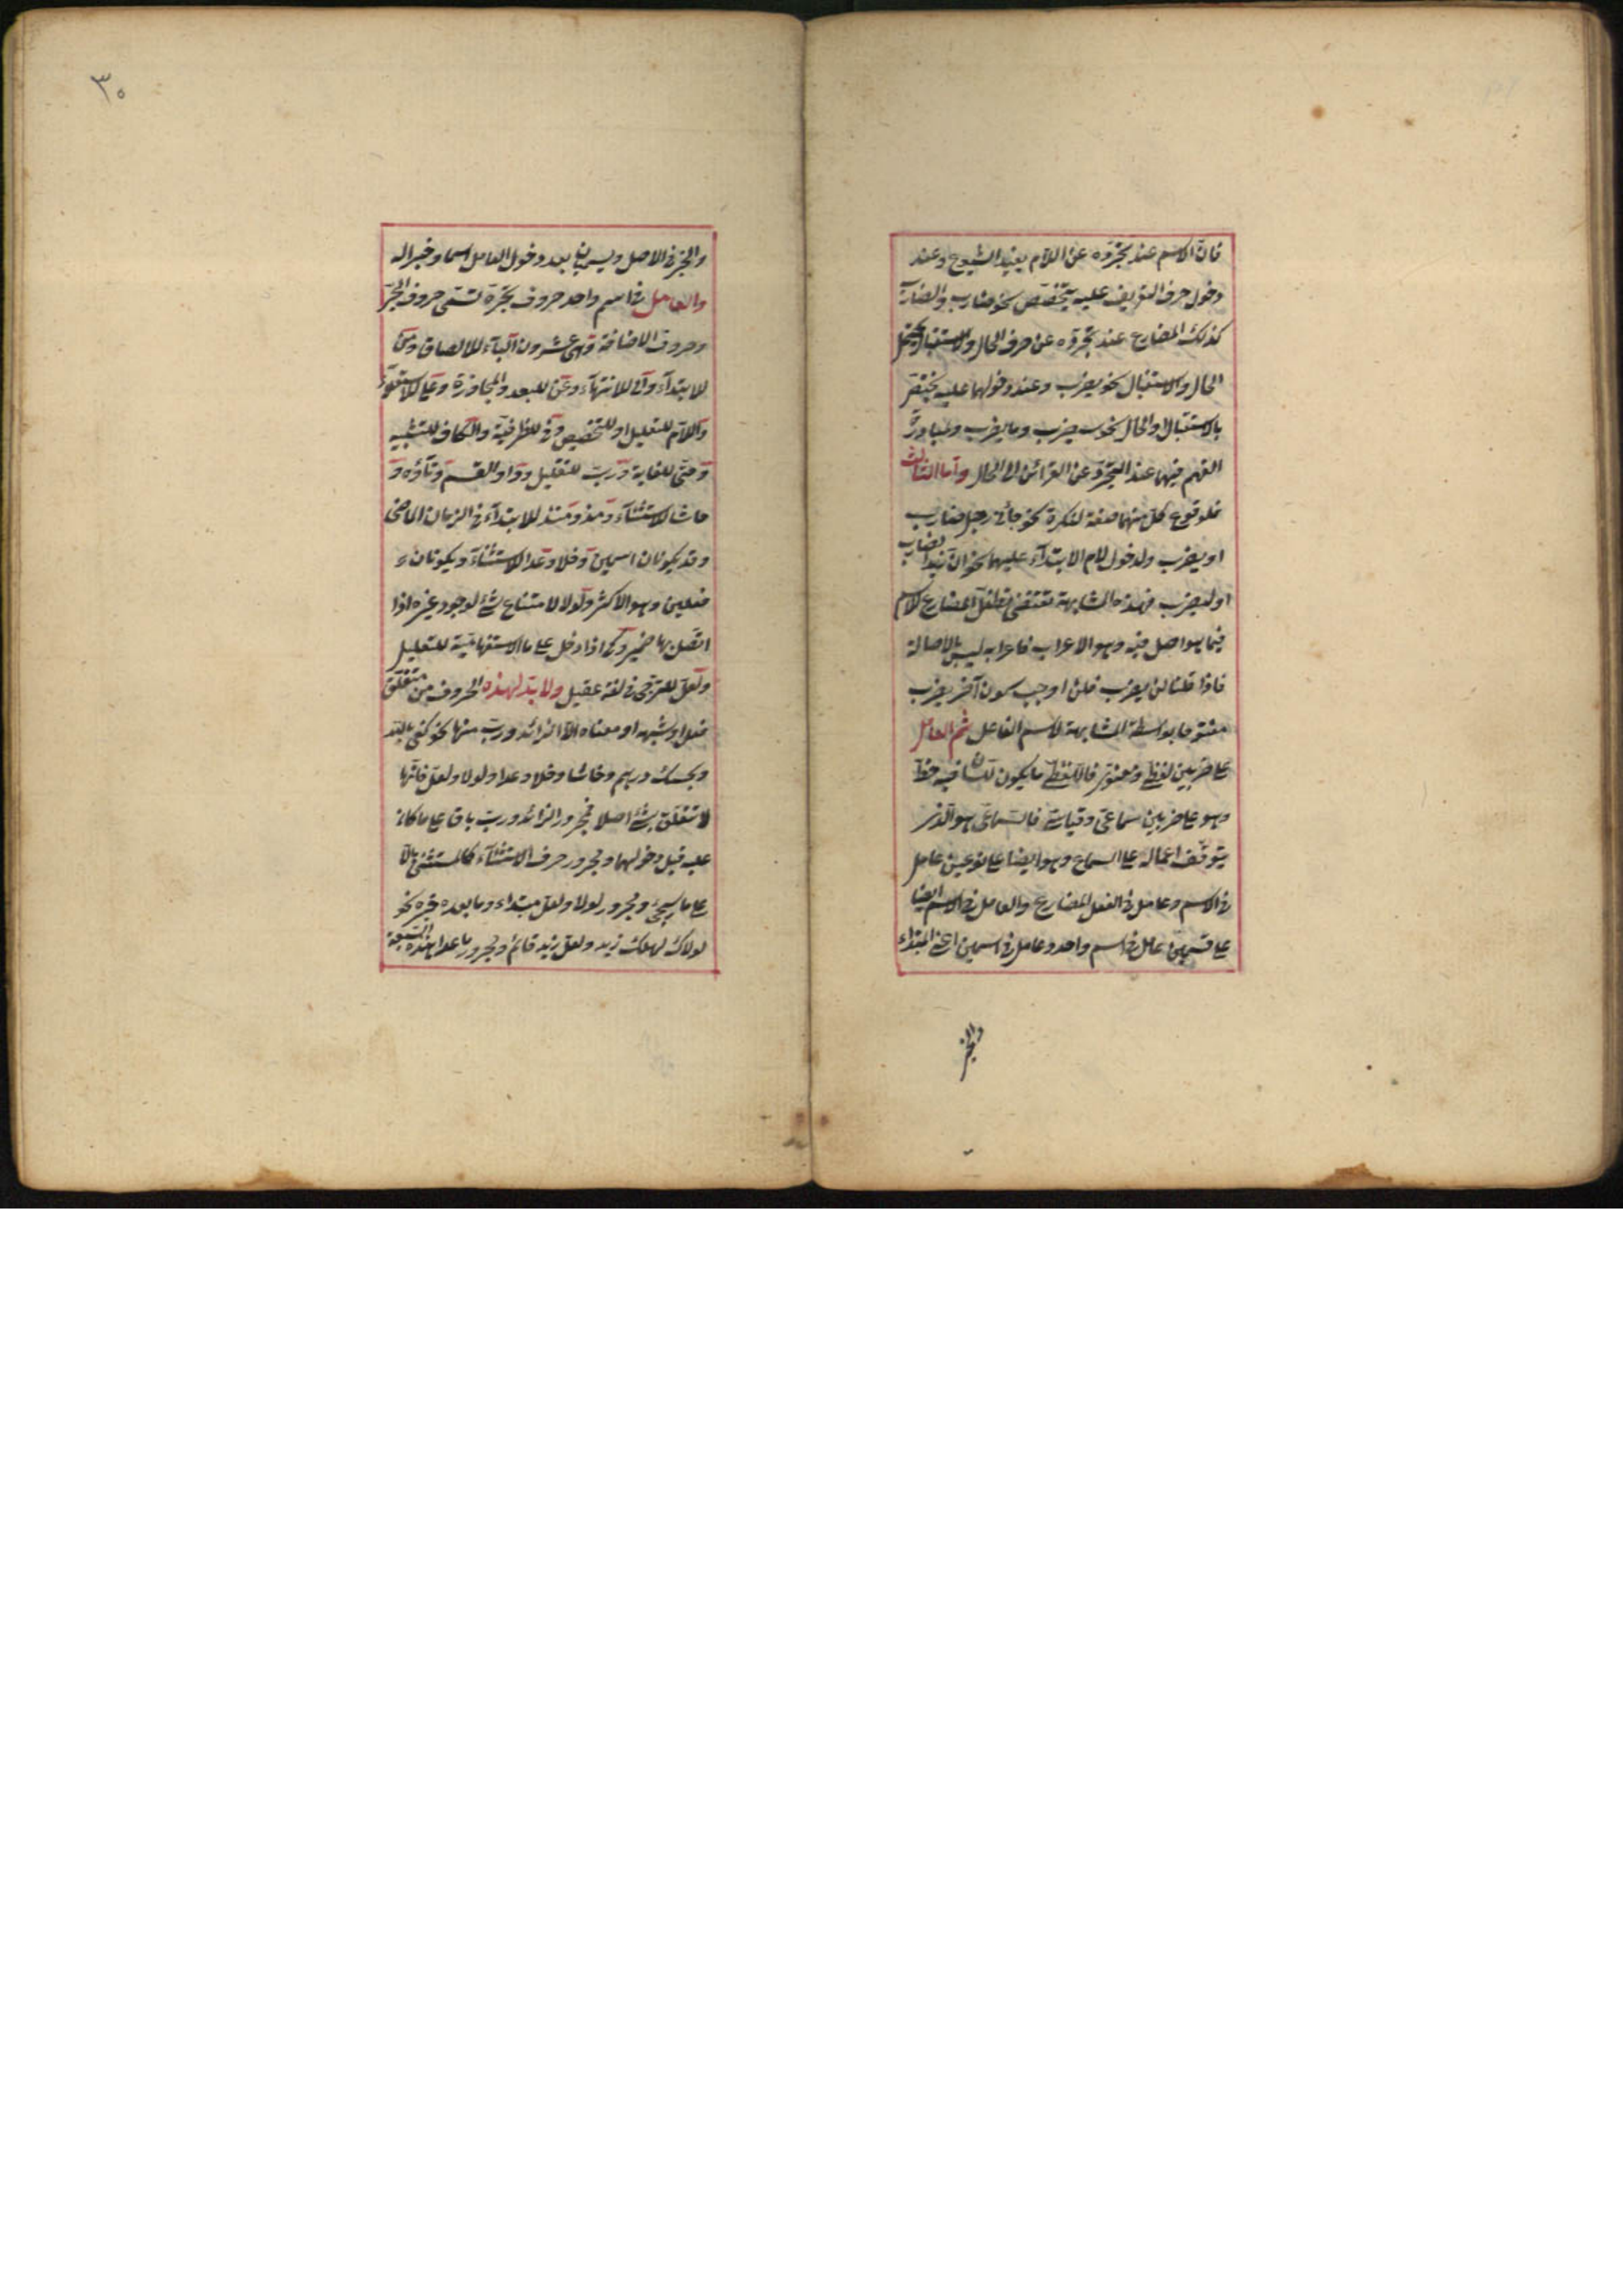 فان الاسم عند تجرده عن اللام يفيد الشيوع وعند
دخول حرف التعريف عليه يتخصص نحو ضارب والضارب
كذلك المضارع عند تجرده عن حرف الحال والاستقبال يحتمل
الحال والاستقبال نحو يضرب وعند دخولهما عليه يختص
بالاستقبال او الحال نحو سيضرب وما يضرب ومبادرة
الفهم فيهما عند التجرد عن القرائن الى الحال واما الثالث
فلوقوع كل منهما صفة لنكرة نحو جائنى رجل ضارب
او يضرب ولدخول لام الابتدآء عليهما نحو ان زيدا لضارب
او ليضرب فهذه المشابهة تقتضى تطفل المضارع للاسم
فيما هو اصل فيه وهو الاعراب فاعرابه ليس بالاصالة
فاذا قلنا لن يضرب فلن اوجب كون آخر يضرب
مفتوحا بواسطة المشابهة لاسم الفاعل ثم العامل
على ضربين لفظى ومعنوى فاللفظى ما يكون للسان فيه حظ
وهو على ضربين سماعى وقياسى فالسماعى هو الذى
يتوقف اعماله على السماع وهو ايضا على نوعين عامل
فى الاسم وعامل فى الفعل المضارع والعامل فى الاسم ايضا
على قسمين عامل فى اسم واحد وعامل فى اسمين اعنى المبتداء
والخبر
٣٠
والخبر فى الاصل ويسميان بعد دخول العامل اسما وخبرا له
والعامل فى اسم واحد حروف تجره تسمى حروف الجر
وحروف الاضافة وهى عشرون البآء للالصاق ومن
للابتدآء والى للانتهآء وعن للبعد والمجاوزة وعلى للاستعلآء
واللام للتعليل او للتخصيص وفى للظرفية والكاف للتشبيه
وحتى للغاية ورب للتقليل وواو القسم وتاؤه و
حاشا للاستثنآء ومذ ومنذ للابتدآء فى الزمان الماضى
وقد يكونان اسمين وخلا وعدا للاستثنآء ويكونان
فعلين وهو الاكثر ولولا لامتناع شئ لوجود غيره اذا
اتصل بها ضمير وكى اذا دخل على ما الاستفهامية للتعليل
ولعل للترجى فى لغة عقيل ولا بد لهذه الحروف من متعلق
فعل او شبهه او معناه الا الزائد ورب منها نحو كفى بالله
وبحسبك درهم وحاشا وخلا وعدا ولولا ولعل فانها
لا تتعلق بشئ اصلا فمجرور الزائد ورب باق على ما كان
عليه قبل دخولهما ومجرور حرف الاستثنآء كالمستثنى بالا
على ما سيجئ ومجرور لولا ولعل مبتداء وما بعده خبره نحو
لولاك لهلك زيد ولعل زيد قائم ومجرور ما عدا هذه السبعة